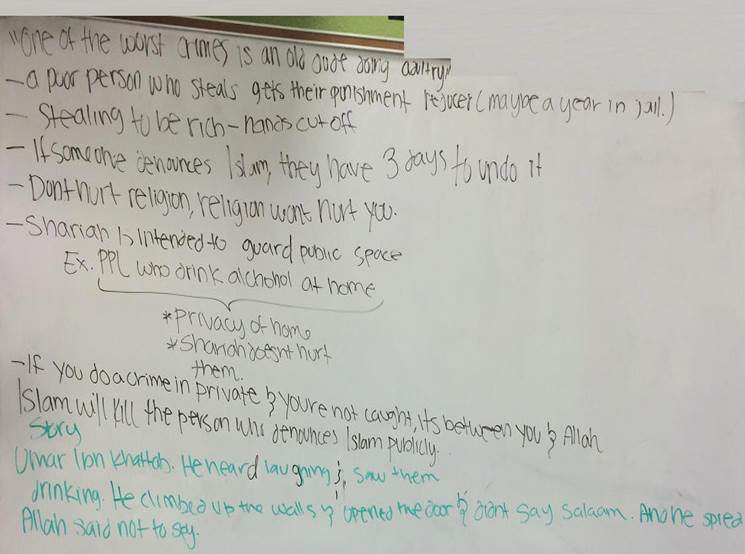 "One of the worst crimes is an old dude doing adultry"
- a poor person who steals gets their punishment reducer (maybe a year in jail.)
- Stealing to be rich - hands cut off
- If someone denounces Islam, they have 3 days to undo it
- Dont hurt religion, religion wont hurt you.
- Shariah is intended to guard public space
Ex. PPL who drink alchohol at home
*Privacy of home
*Shariah doesnt hurt
them.
- If you do a crime in private & youre not caught, its between you & Allah
Islam will kill the person who denounces Islam publicly.
Story
Umar Ibn Khattab. He heard laughing & saw them
drinking. He climbed up the walls & opened the door & didnt say salaam. And he spied
Allah said not to spy.